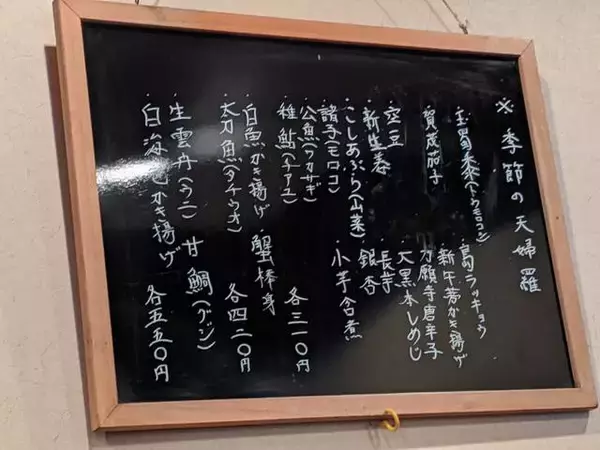 ※季節の天婦羅
・玉蜀黍(トウモロコシ) 島ラッキョウ
・賀茂茄子 新牛蒡かき揚げ
万願寺唐辛子
・空豆 大黒本しめじ
・新生姜 長芋
・こしあぶら(山菜) 銀杏
・諸子(モロコ) 小芋含煮
・公魚(ワカサギ)
・稚鮎(チアユ) 各三一〇円
・白魚かき揚げ 蟹棒身
・太刀魚(タチウオ) 各四二〇円
・生雲丹(ウニ) 甘鯛(グジ)
・白海老かき揚げ 各五五〇円